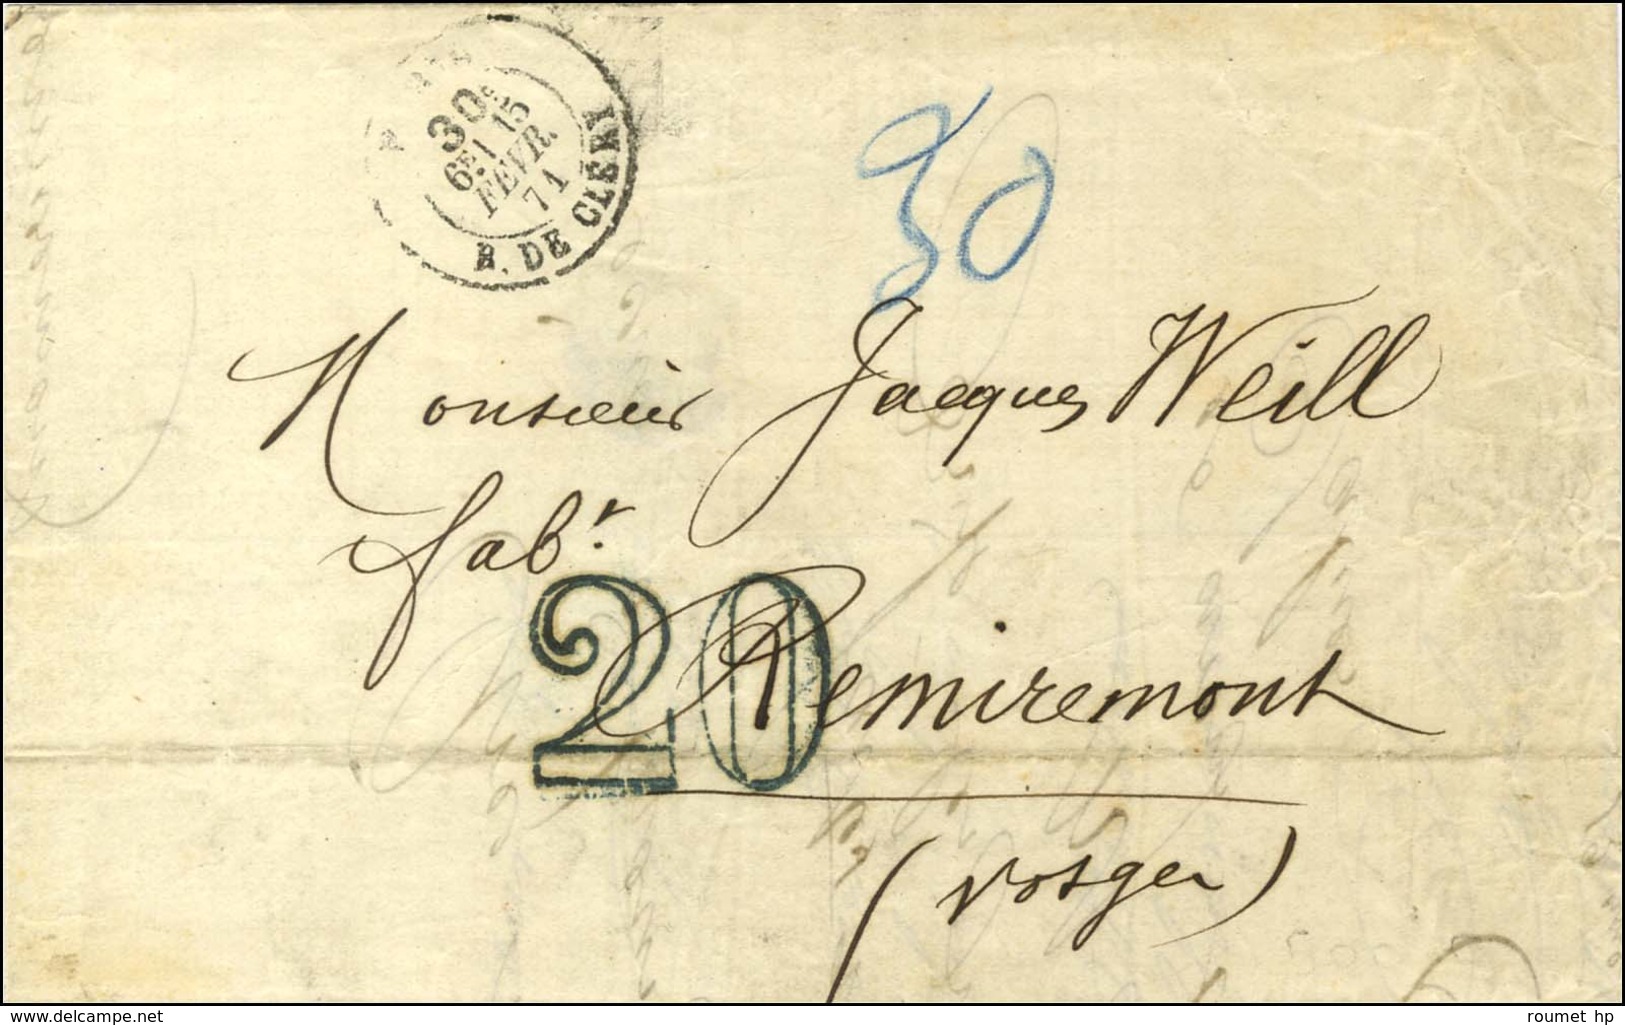 PARIS
30c
6E/ 15
FEVR.
71
R. DE CLÉRY
30
Monsieur Jacques Weill
fabt.
20
Remiremont
(Vosges)
www.delcampe.net
roumet hp